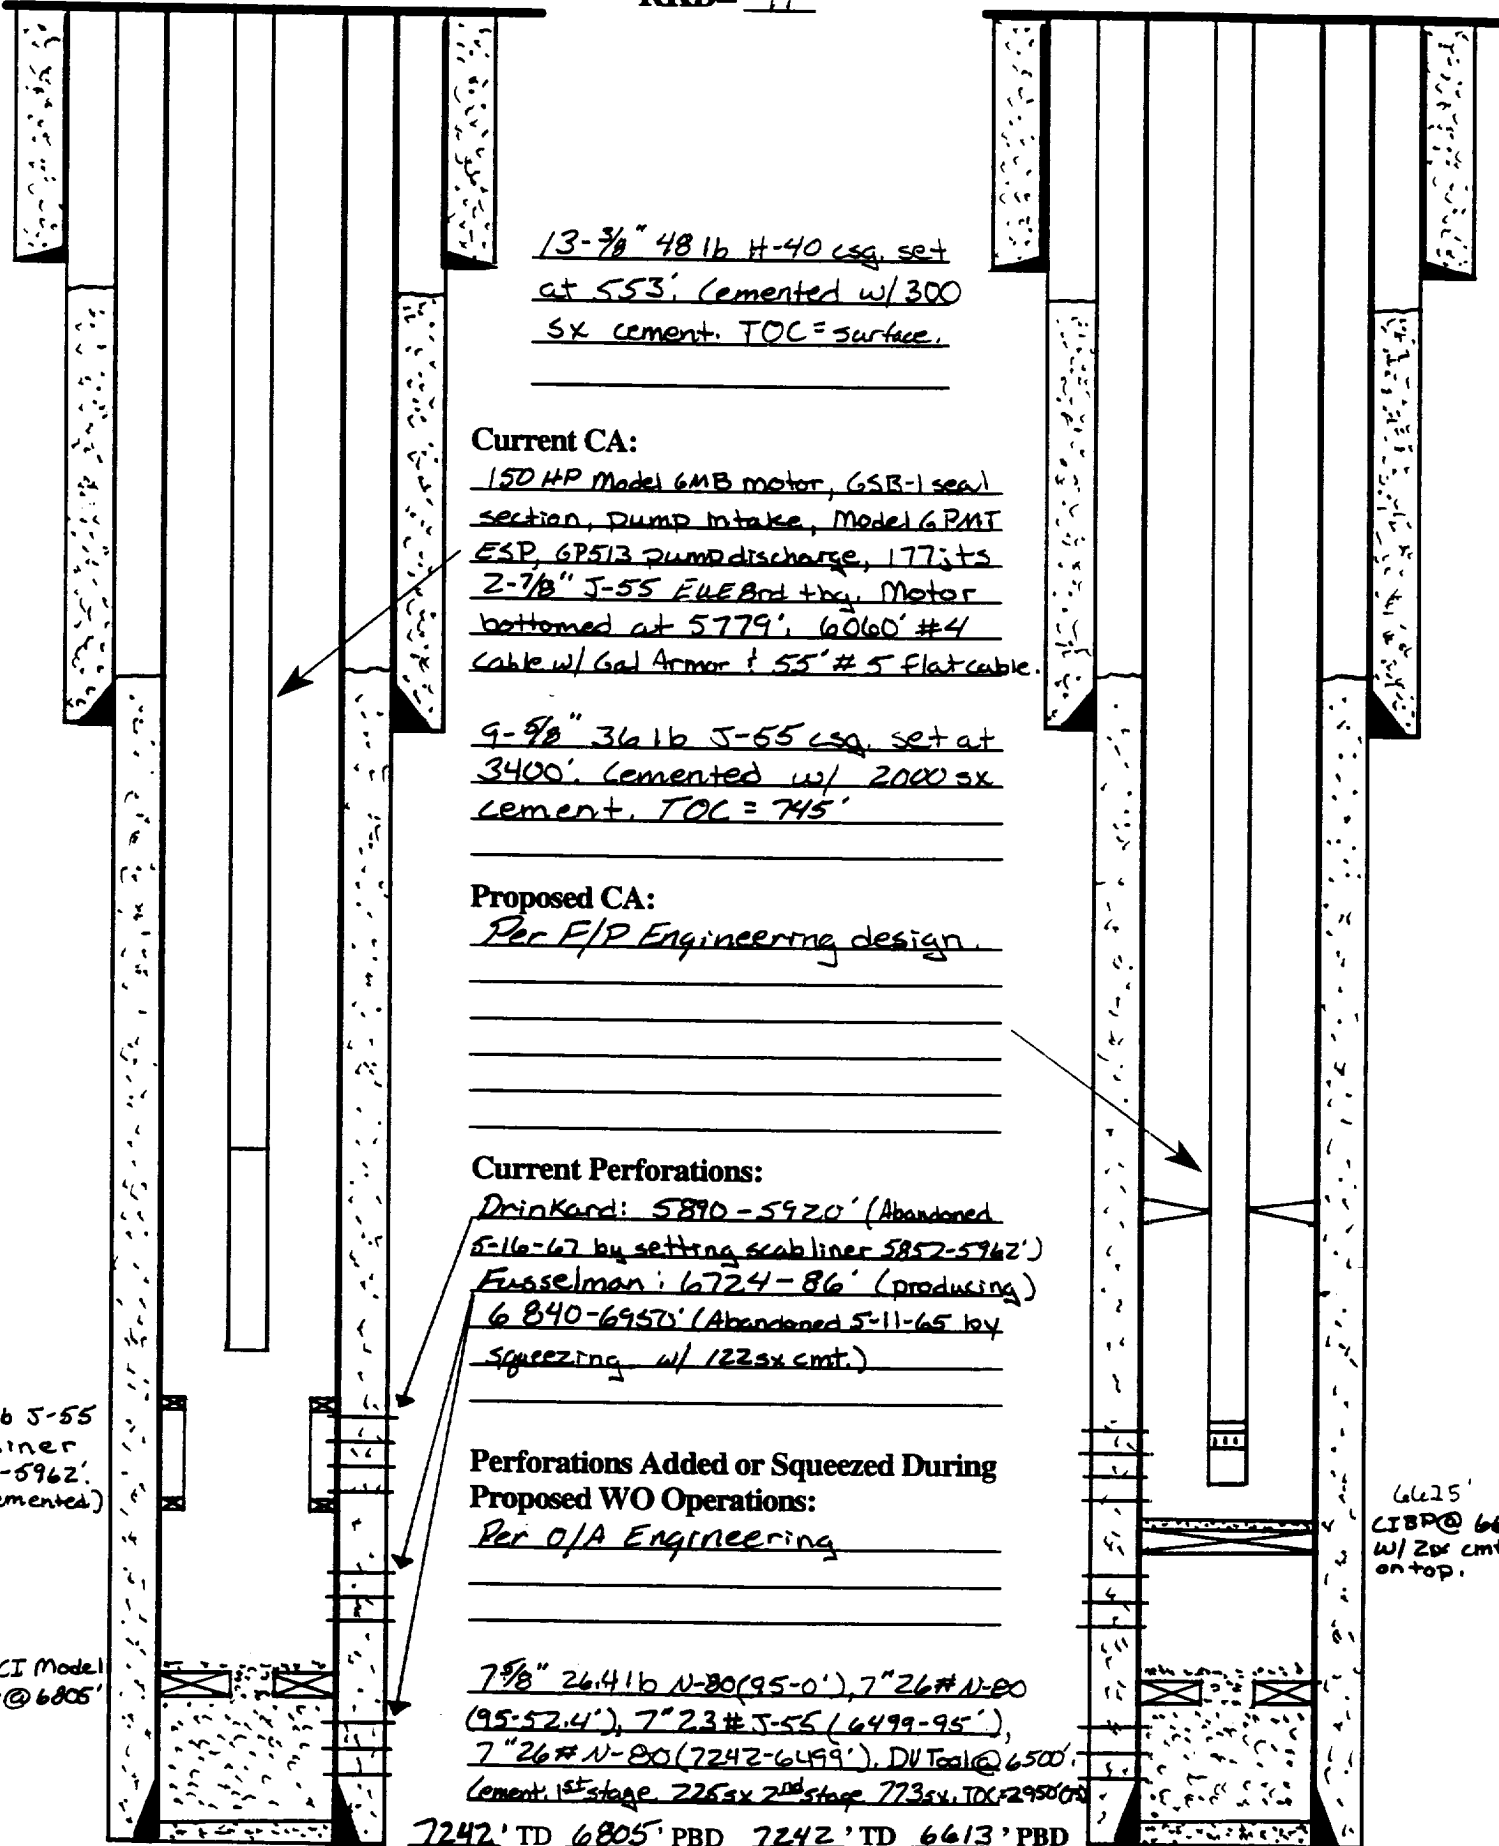 RKB= 11
13-3/8" 48 lb H-40 csg. set
at 553'. Cemented w/ 300
sx cement. TOC = surface.
Current CA:
150 HP Model 6MB motor, GSB-1 seal
section, pump intake, Model GPMT
ESP, GP513 pump discharge, 177 jts
2-7/8" J-55 EUE 8rd tbg. Motor
bottomed at 5779'. 6060' #4
cable w/ Armor & 55' #5 flat cable.
9-5/8" 36 lb J-55 csg. set at
3400'. Cemented w/ 2000 sx
cement. TOC = 745'
Proposed CA:
Per F/P Engineering design.
Current Perforations:
Drinkard: 5890-5920' (Abandoned
5-16-67 by setting scab liner 5852-5962')
Fusselman: 6724-86' (producing)
6840-6950' (Abandoned 5-11-65 by
squeezing w/ 122 sx cmt.)
b J-55
iner
-5962'.
emented.)
Perforations Added or Squeezed During
Proposed WO Operations:
Per O/A Engineering
6625'
CIBP @ 66
w/ 2sx cmt
on top.
CI Model
@ 6805'
7 5/8" 26.4 lb N-80 (95-0'), 7" 26# N-80
(95-52.4'), 7" 23# J-55 (6499-95'),
7" 26# N-80 (7242-6499'). DV Tool @ 6500'.
Cement. 1st stage 225sx 2nd stage 773sx. TOC=2950'
7242' TD 6805' PBD 7242' TD 6613' PBD